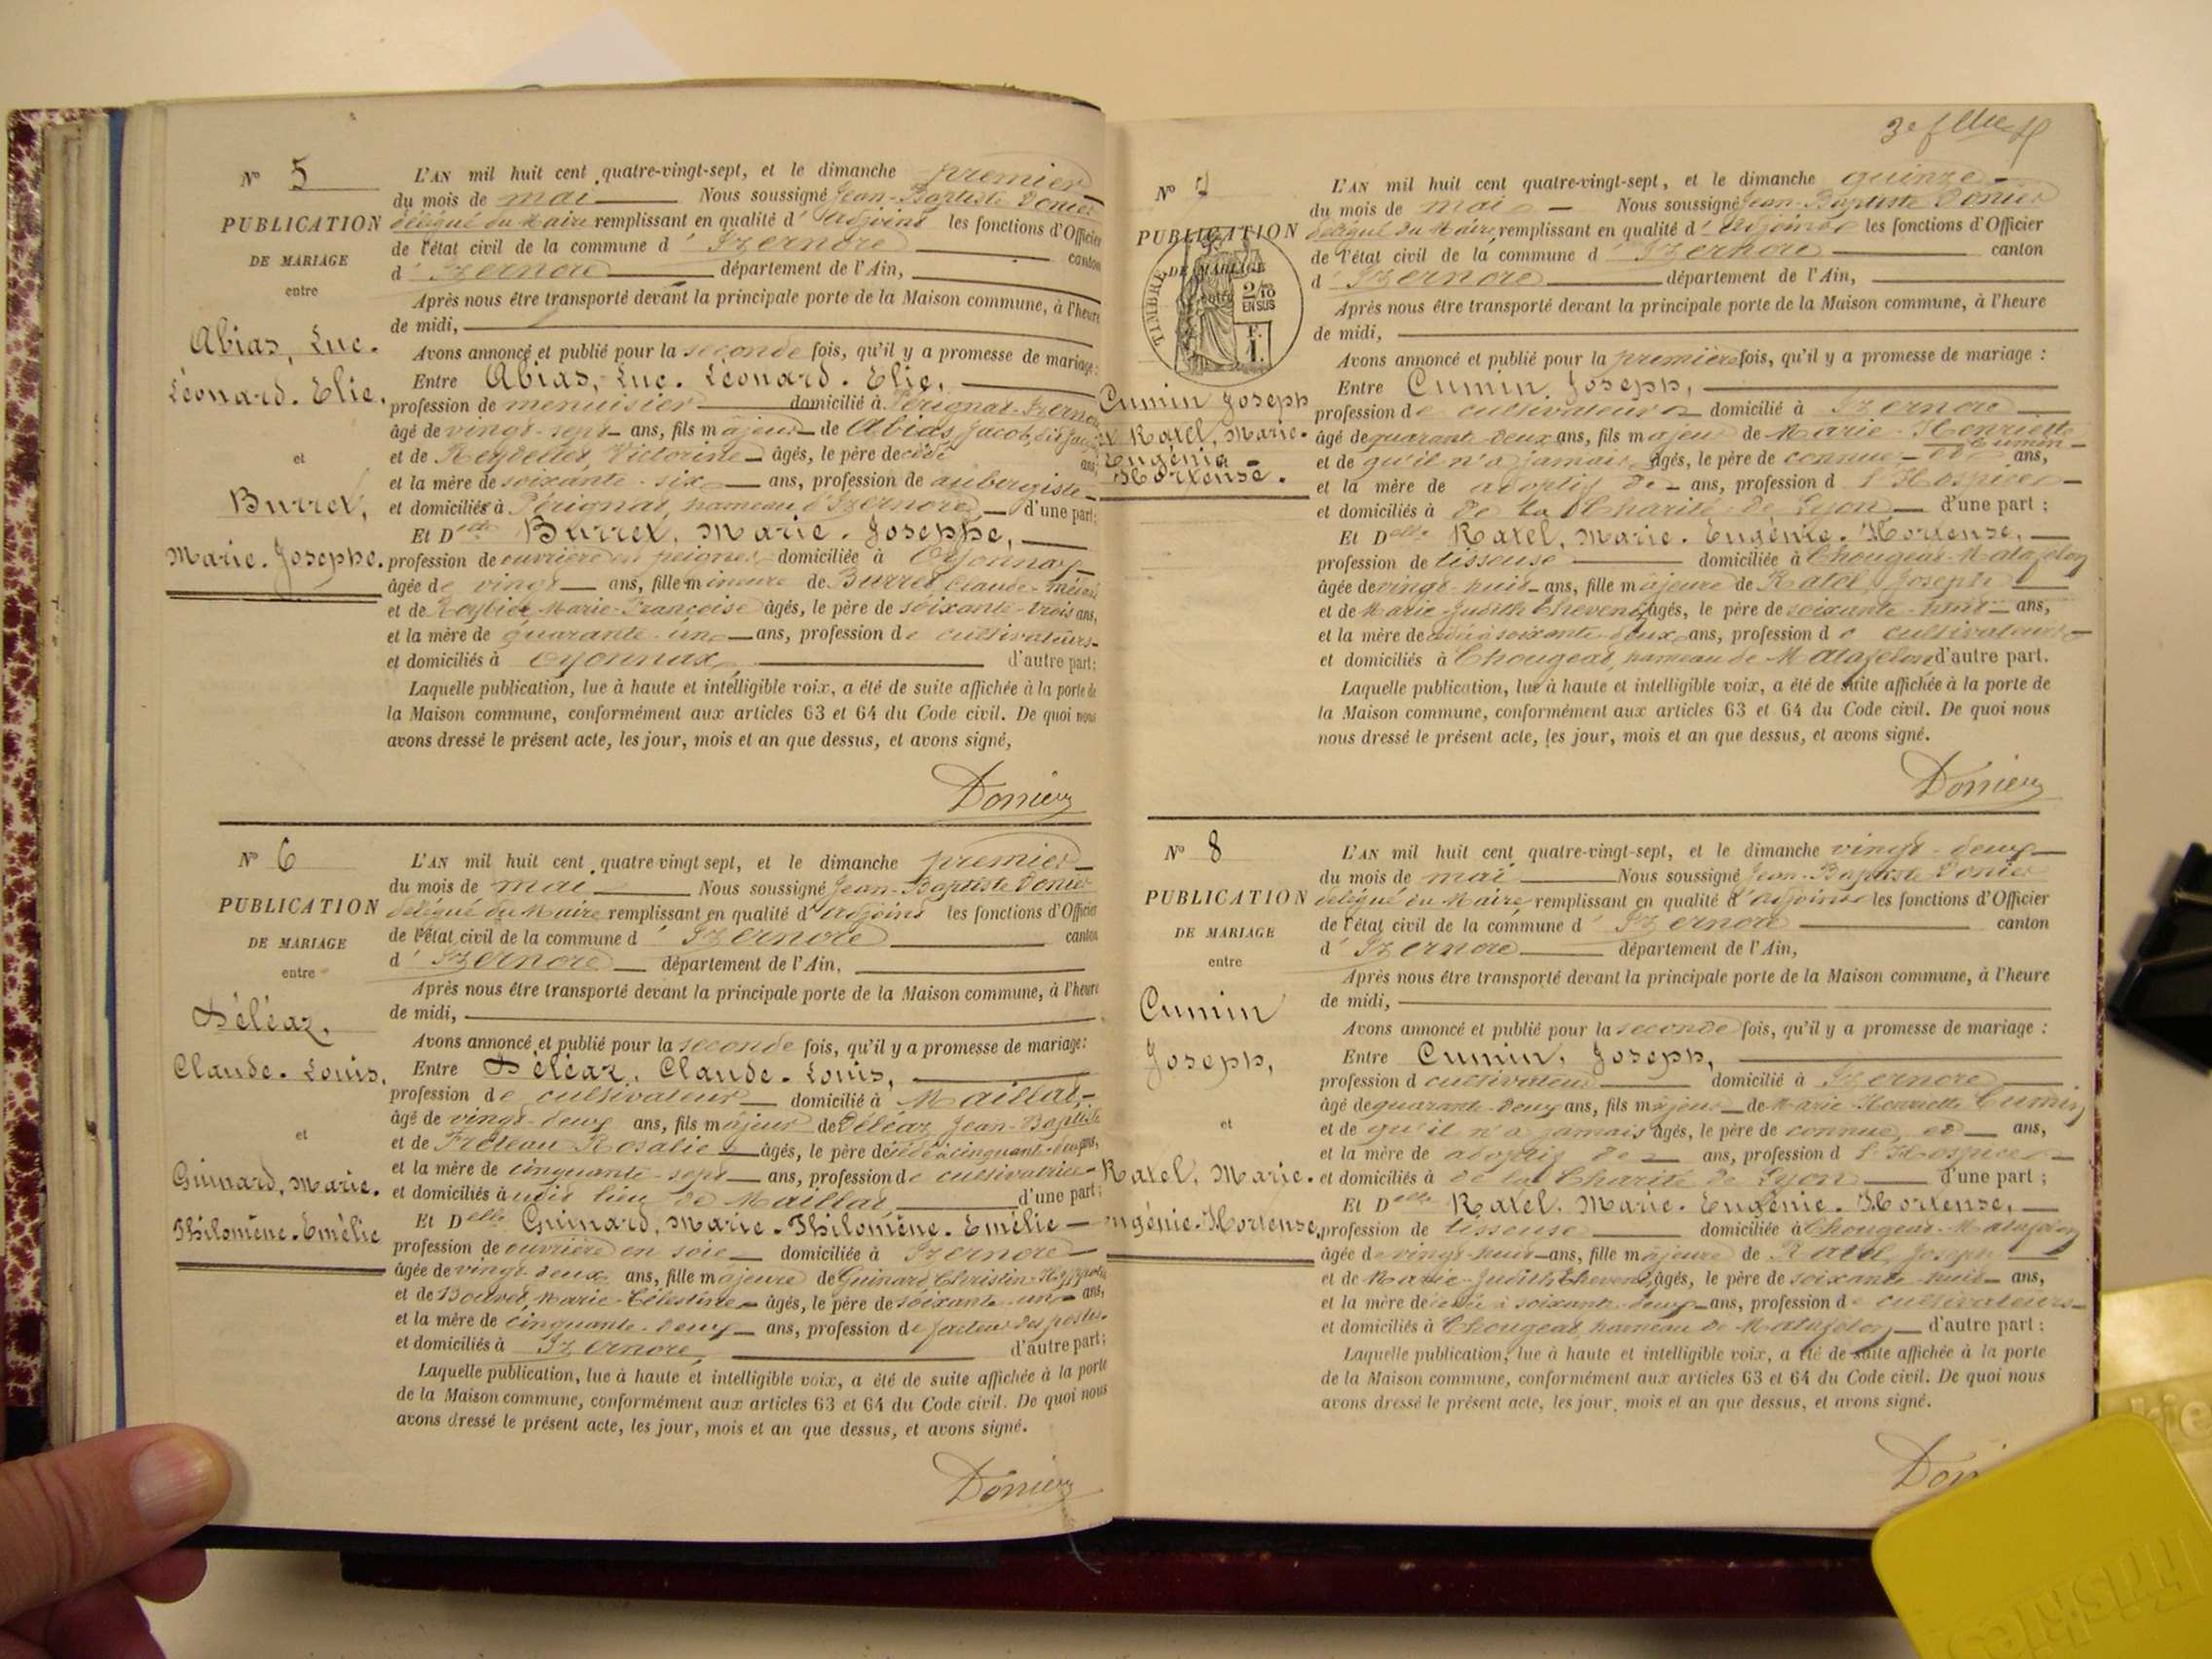 Nº 5
PUBLICATION
DE MARIAGE
entre
Abias, Luc.
Léonard. Elie,
et
Burret,
Marie. Josephe.
L'AN mil huit cent quatre-vingt-sept, et le dimanche premier
du mois de mai Nous soussigné Jean-Baptiste Donier
délégué du Maire remplissant en qualité d'adjoint les fonctions d'Officier
de l'état civil de la commune d'Izernore canton
d'Izernore département de l'Ain,
Après nous être transporté devant la principale porte de la Maison commune, à l'heure
de midi,
Avons annoncé et publié pour la seconde fois, qu'il y a promesse de mariage:
Entre Abias, Luc. Léonard. Elie,
profession de menuisier domicilié à Pérignat-Izernore
âgé de vingt-sept ans, fils majeur de Abias, Jacob,
et de Reydellet Victorine âgés, le père decédé ans,
et la mère de soixante-six ans, profession de aubergiste
et domiciliés à Pérignat, hameau d'Izernore d'une part;
Et Delle Burret, Marie. Josephe,
profession de ouvrière en peignes domiciliée à Oyonnax
âgée de vingt ans, fille mineure de Burret Claude-
et de Marie-Françoise âgés, le père de soixante-trois ans,
et la mère de quarante-un ans, profession de cultivateurs
et domiciliés à Oyonnax, d'autre part;
Laquelle publication, lue à haute et intelligible voix, a été de suite affichée à la porte de
la Maison commune, conformément aux articles 63 et 64 du Code civil. De quoi nous
avons dressé le présent acte, les jour, mois et an que dessus, et avons signé,
Donier
Nº 6
PUBLICATION
DE MARIAGE
entre
Déléaz,
Claude. Louis,
et
Guinard, Marie.
Philomène. Emélie
L'AN mil huit cent quatre vingt sept, et le dimanche premier
du mois de mai Nous soussigné Jean-Baptiste Donier
délégué du Maire remplissant en qualité d'adjoint les fonctions d'Officier
de l'état civil de la commune d'Izernore canton
d'Izernore département de l'Ain,
Après nous être transporté devant la principale porte de la Maison commune, à l'heure
de midi,
Avons annoncé et publié pour la seconde fois, qu'il y a promesse de mariage:
Entre Déléaz, Claude. Louis,
profession de cultivateur domicilié à Maillat,
âgé de vingt-deux ans, fils majeur de Déléaz, Jean-Baptiste
et de Rosalie âgés, le père décédé à cinquante-deux ans,
et la mère de cinquante-sept ans, profession de cultivatrice
et domiciliés à udit lieu de Maillat d'une part;
Et Delle Guinard, Marie-Philomène. Emélie
profession de ouvrière en soie domiciliée à Izernore
âgée de vingt-deux ans, fille majeure de Guinard Christin-Hyppolite
et de Bouvet, Marie-Célestine âgés, le père de soixante-un ans,
et la mère de cinquante-deux ans, profession de facteur des postes
et domiciliés à Izernore, d'autre part;
Laquelle publication, lue à haute et intelligible voix, a été de suite affichée à la porte
de la Maison commune, conformément aux articles 63 et 64 du Code civil. De quoi nous
avons dressé le présent acte, les jour, mois et an que dessus, et avons signé.
Donier
Nº 7
PUBLICATION
DE MARIAGE
TIMBRE
2/10
EN SUS
F.
1.
Cumin Joseph
et Ratel, Marie.
Eugénie
Hortense.
L'AN mil huit cent quatre-vingt-sept, et le dimanche quinze
du mois de mai Nous soussigné Jean-Baptiste Donier
délégué du Maire, remplissant en qualité d'adjoint les fonctions d'Officier
de l'état civil de la commune d'Izernore canton
d'Izernore département de l'Ain,
Après nous être transporté devant la principale porte de la Maison commune, à l'heure
de midi,
Avons annoncé et publié pour la première fois, qu'il y a promesse de mariage :
Entre Cumin, Joseph,
profession de cultivateur domicilié à Izernore
âgé de quarante-deux ans, fils majeur de Marie-Henriette
Cumin
et de qu'il n'a jamais âgés, le père de connue, et ans,
et la mère de adoptif de ans, profession d l'Hospice
et domiciliés à de la Charité de Lyon d'une part ;
Et Delle Ratel, Marie. Eugénie. Hortense,
profession de tisseuse domiciliée à Chougeat-Matafelon
âgée de vingt-huit ans, fille majeure de Ratel, Joseph
et de Marie-Judith Thevenet, âgés, le père de soixante-huit ans,
et la mère de cédée à soixante-deux ans, profession de cultivateurs
et domiciliés à Chougeat, hameau de Matafelon d'autre part.
Laquelle publication, lue à haute et intelligible voix, a été de suite affichée à la porte de
la Maison commune, conformément aux articles 63 et 64 du Code civil. De quoi nous
nous dressé le présent acte, les jour, mois et an que dessus, et avons signé.
Donier
Nº 8
PUBLICATION
DE MARIAGE
entre
Cumin
Joseph,
et
Ratel, Marie.
Eugénie. Hortense,
L'AN mil huit cent quatre-vingt-sept, et le dimanche vingt-deux
du mois de mai Nous soussigné Jean-Baptiste Donier
délégué du Maire, remplissant en qualité d'adjoint les fonctions d'Officier
de l'état civil de la commune d'Izernore canton
d'Izernore département de l'Ain,
Après nous être transporté devant la principale porte de la Maison commune, à l'heure
de midi,
Avons annoncé et publié pour la seconde fois, qu'il y a promesse de mariage :
Entre Cumin, Joseph,
profession d cultivateur domicilié à Izernore
âgé de quarante-deux ans, fils majeur de Marie Henriette Cumin
et de qu'il n'a jamais âgés, le père de connue, et ans,
et la mère de adoptif de ans, profession d l'Hospice
et domiciliés à de la Charité de Lyon d'une part ;
Et Delle Ratel, Marie. Eugénie. Hortense,
profession de tisseuse domiciliée à Chougeat-Matafelon
âgée de vingt-huit ans, fille majeure de Ratel, Joseph
et de Marie-Judith Thevenet, âgés, le père de soixante-huit ans,
et la mère décédée à soixante-deux ans, profession de cultivateurs
et domiciliés à Chougeat, hameau de Matafelon d'autre part ;
Laquelle publication, lue à haute et intelligible voix, a été de suite affichée à la porte
de la Maison commune, conformément aux articles 63 et 64 du Code civil. De quoi nous
avons dressé le présent acte, les jour, mois et an que dessus, et avons signé.
Don